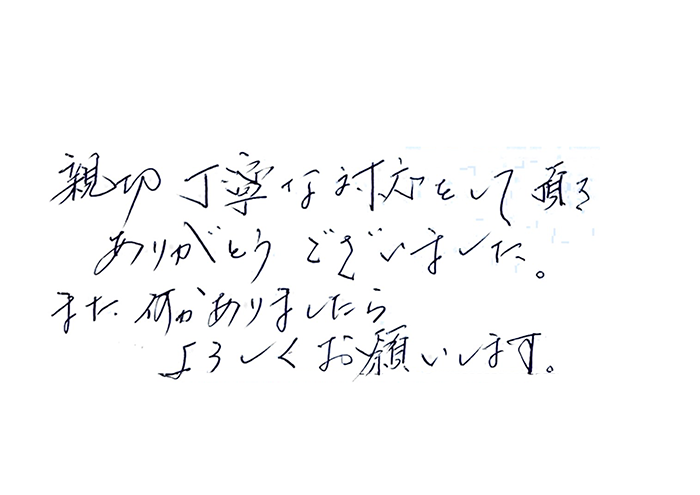 親切丁寧な対応をして頂き
ありがとうございました。
また何かありましたら
よろしくお願いします。